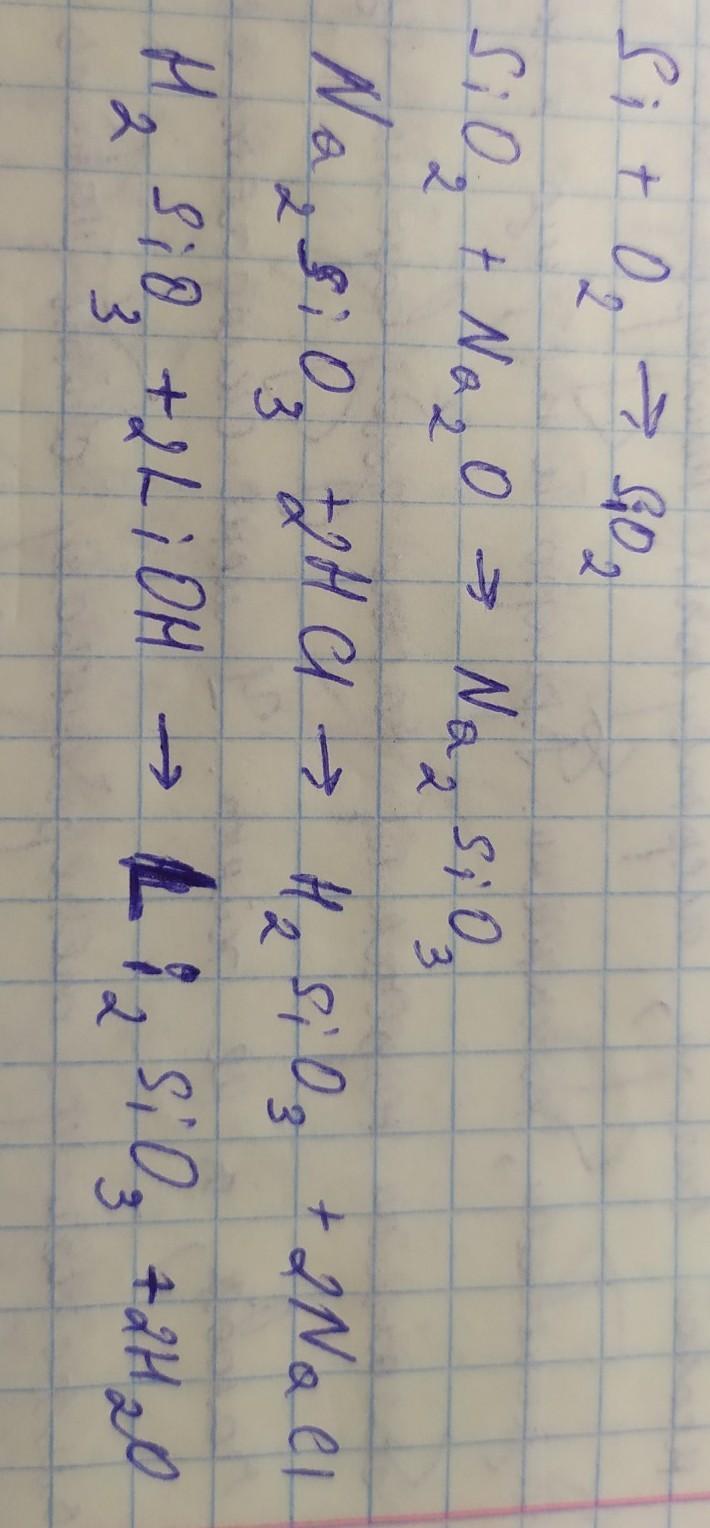 Si + O₂ → SiO₂
SiO₂ + Na₂O → Na₂SiO₃
Na₂SiO₃ + 2HCl → H₂SiO₃ + 2NaCl
H₂SiO₃ + 2LiOH → Li₂SiO₃ + 2H₂O